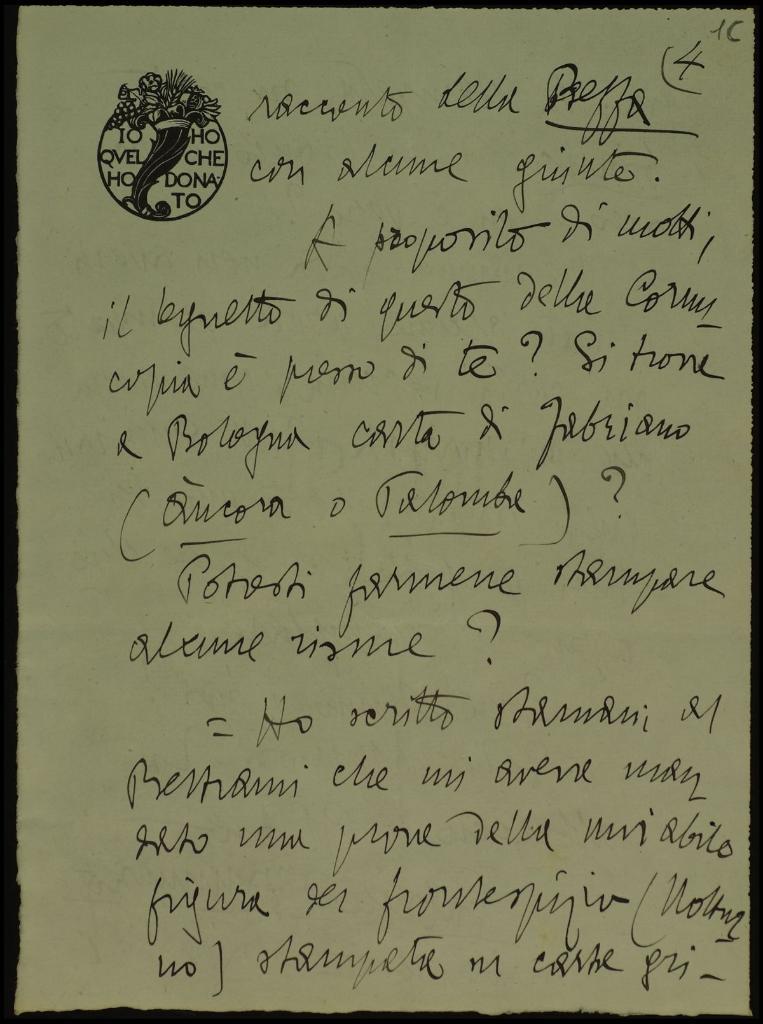 1C
(4
IO HO
QVEL CHE
HO DONA
TO
racconto della Beffa
con alcune giunte.
A proposito di motti,
il legnetto di questo della Cornu-
copia è presso di te? Si trova
a Bologna carta di Fabriano
(Àncora o Palomba)?
Potresti farmene stampare
alcune risme?
= Ho scritto stamani al
Beltrami che mi aveva man-
dato una prova della mirabile
figura del frontespizio (Nottur-
no) stampata in carta gri-